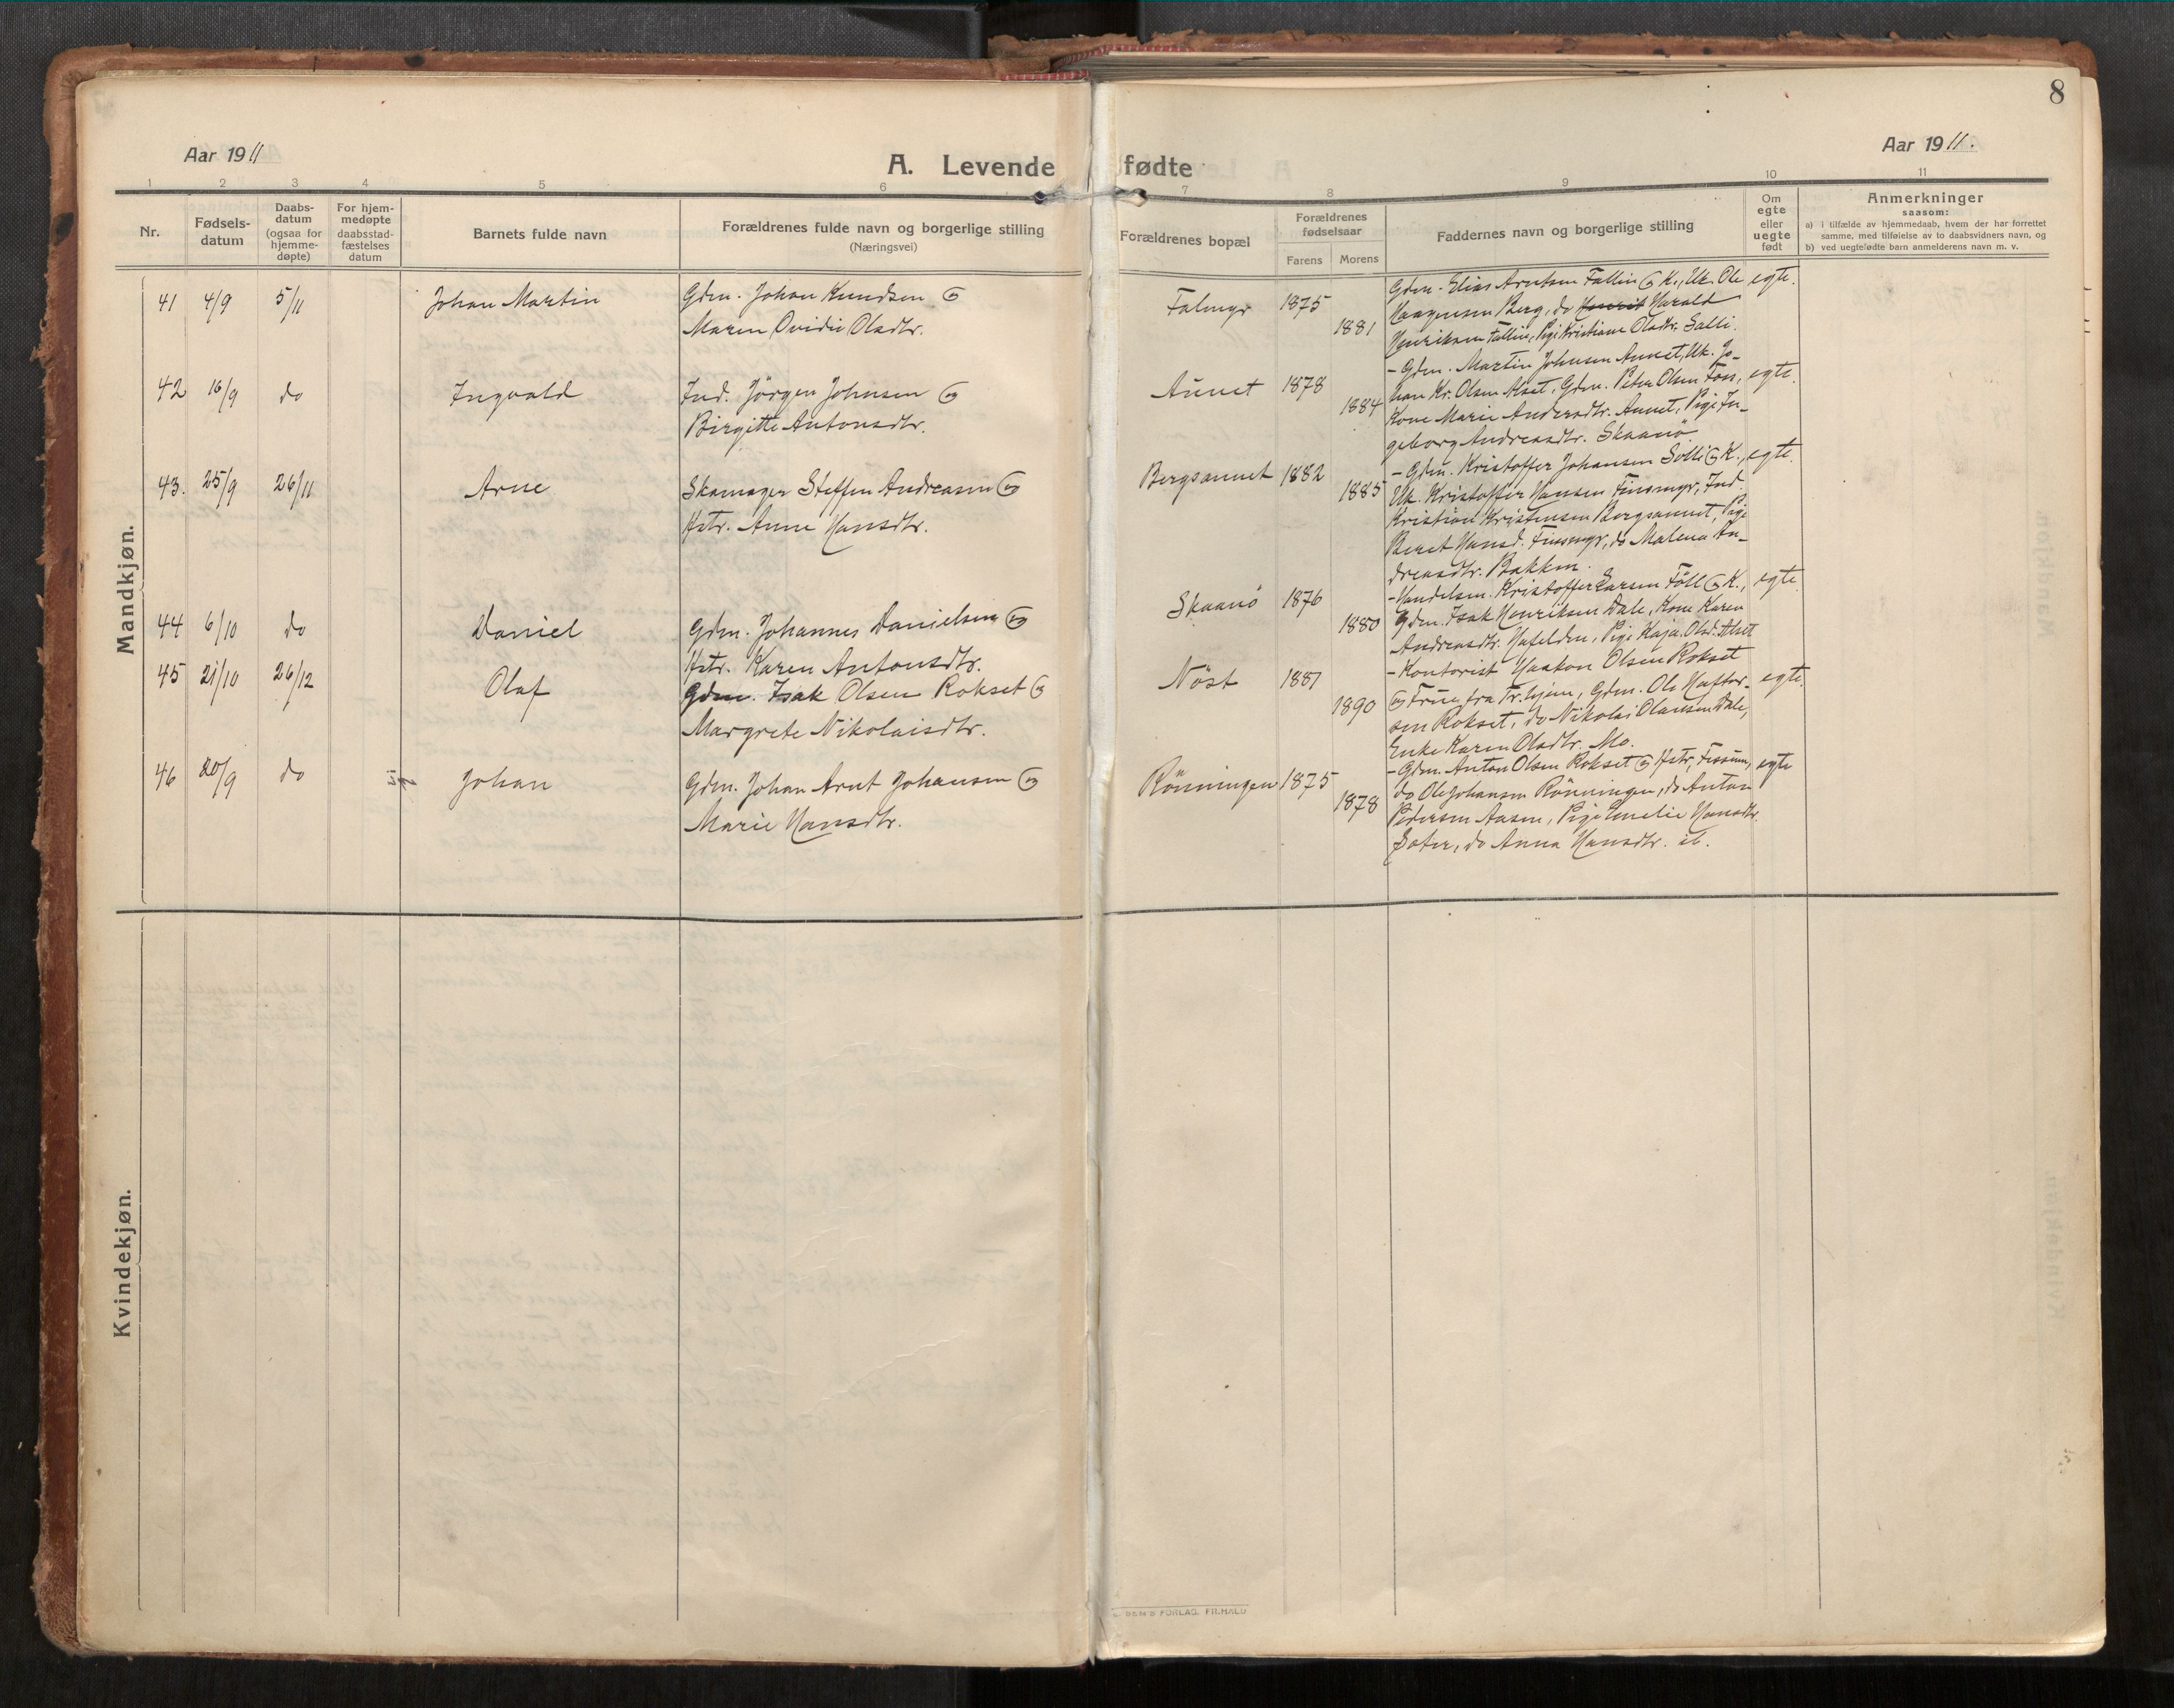 8
Aar 1911
Aar 1911.
A. Levende fødte
1 2 3 4 5 6 7 8 9 10 11
Nr.
Fødsels-
datum
Daabs-
datum
(ogsaa for
hjemme-
døpte)
For hjem-
medøpte
daabsstad-
fæstelses
datum
Barnets fulde navn
Forældrenes fulde navn og borgerlige stilling
(Næringsvei)
Forældrenes bopæl
Forældrenes
fødselsaar
Farens Morens
Faddernes navn og borgerlige stilling
Om
egte
eller
uegte
født
Anmerkninger
saasom:
a) i tilfælde av hjemmedaab, hvem der har forrettet
samme, med tilføielse av to daabsvidners navn, og
b) ved uegtefødte barn anmelderens navn m. v.
Mandkjøn.
41 4/9 5/11 Johan Martin Gdm. Johan Knudsen og
Maren Ovidie Olsdtr.
Falmyr 1875 1881
Gdm. Elias Arntsen Fallin og K., Uk. Ole egte.
Haagensen Berg, do Henrik Harald
Henriksen Fallin, Pige Kristiane Olsdtr. Solli.
42 16/9 do Ingvald Ind. Jörgen Johnsen og
Birgitte Antonsdtr.
Aunet 1878 1884
- Gdm. Martin Johnsen Aunet, Uk. Jo-
han Kr. Olsen Alset, Gdm. Peter Olsen Foss, egte.
Kone Marie Andersdtr. Aunet, Pige In-
geborg Andreasdtr. Skaanö
43. 25/9 26/11 Arne Skomager Steffen Andreasen og
Hstr. Anne Hansdtr.
Bergsaunet 1882 1885
- Gdm. Kristoffer Johansen Solli og K., egte.
Uk. Kristoffer Hansen Finsmyr, Ind.
Kristian Kristensen Bergsaunet, Pige
Beret Hansd. Finsmyr, do Malena An-
dreasdtr. Bakken.
44 6/10 do Daniel Gdm. Johannes Danielsen og
Hstr. Karen Antonsdtr.
Skaanö 1876 1880
- Handelsm. Kristoffer Larsen Föll og K., egte
Gdm. Isak Henriksen Dale, Kone Karen
Andreasdtr. Hafelden, Pige Kaja Olsd. Alset
45 21/10 26/12 Olaf Gdm. Isak Olsen Rokset og
Margrete Nikolaisdtr.
Nöst 1881 1890
- Kontorist Haakon Olsen Rokset
og Frue fra Tr.hjem, Gdm. Ole Haftor- egte.
sen Rokset, do Nikolai Olausen Dale,
Enke Karen Olsdtr. Mo.
46 20/9 do Johan Gdm. Johan Arnt Johansen og
Marie Hansdtr.
Rönningen 1875 1878
- Gdm. Anton Olsen Rokset og Hstr, Fissum, egte
do Ole Johansen Rönningen, do Anton
Pedersen Aasen, Pige Emelie Hansdtr.
Sæter, do Anna Hansdtr. ib.
Kvindekjøn.